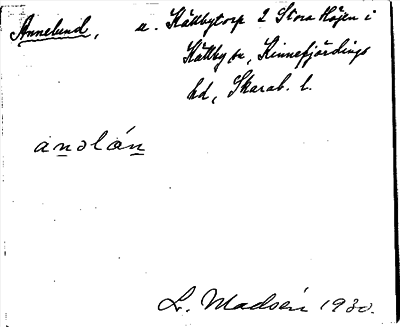 Annelund, u. Kållbytorp 2 Stora Höjen i
Källby sn, Kinnefjärdings
hd, Skarab. l.
anəlán
L. Madsén 1930.